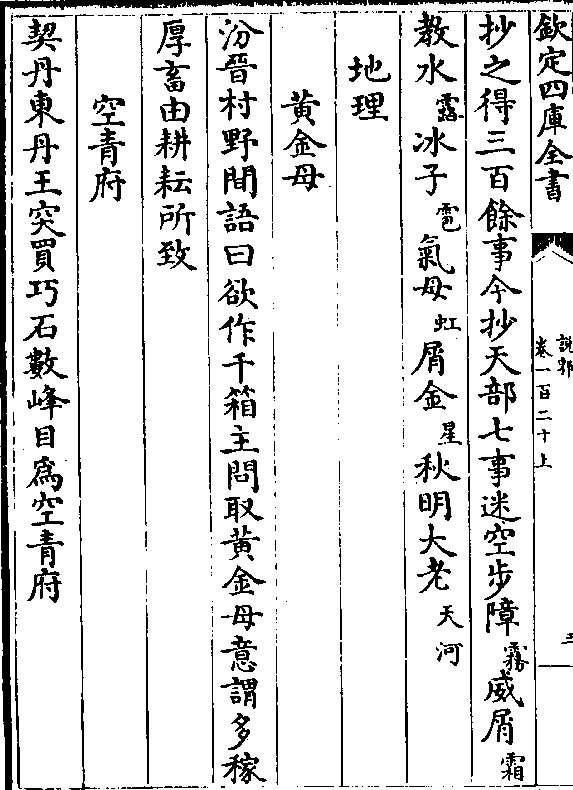 欽定四庫全書
說郛
卷一百二十上
三
抄之得三百餘事今抄天部七事迷空步障霧威屑霜
教水露冰子雹氣母虹屑金星秋明大老天河
地理
黄金母
汾晉村野間語曰欲作千箱主問取黄金母意謂多稼
厚畜由耕耘所致
空青府
契丹東丹王突買巧石數峰目為空青府